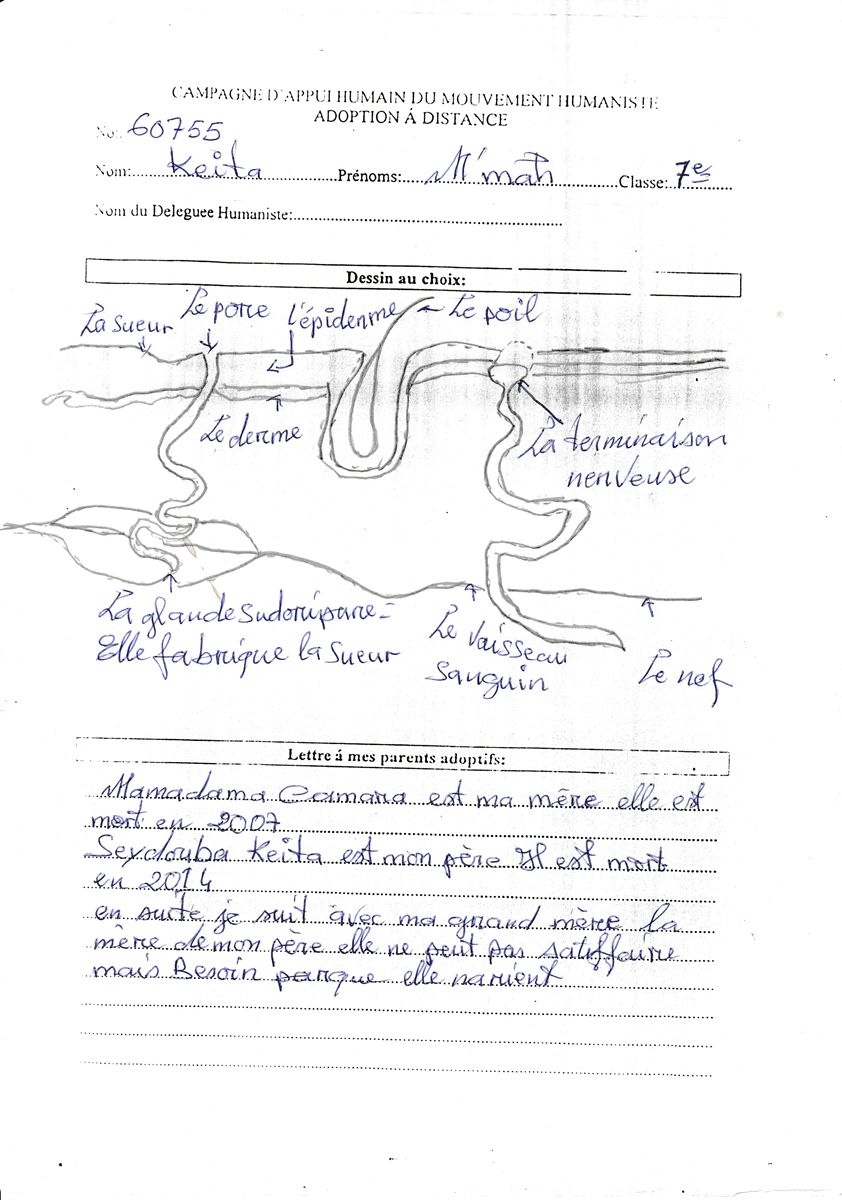 CAMPAGNE D'APPUI HUMAIN DU MOUVEMENT HUMANISTE
ADOPTION Á DISTANCE
No: 60755
Nom: Keita Prénoms: M'mah Classe: 7e
Nom du Deleguee Humaniste:
Dessin au choix:
La sueur Le pore l'épiderme ← Le poil
Le derme
La terminaison
nerveuse
La glande sudoripare =
Elle fabrique la sueur
Le vaisseau
sanguin
Le nef
Lettre á mes parents adoptifs:
Mamadama Camara est ma mère elle est
mort en 2007
Seydouba Keita est mon père Il est mort
en 2014
en suite je suit avec ma grand mère la
mère de mon père elle ne peut pas satiffaire
mais Besoin parque elle narient